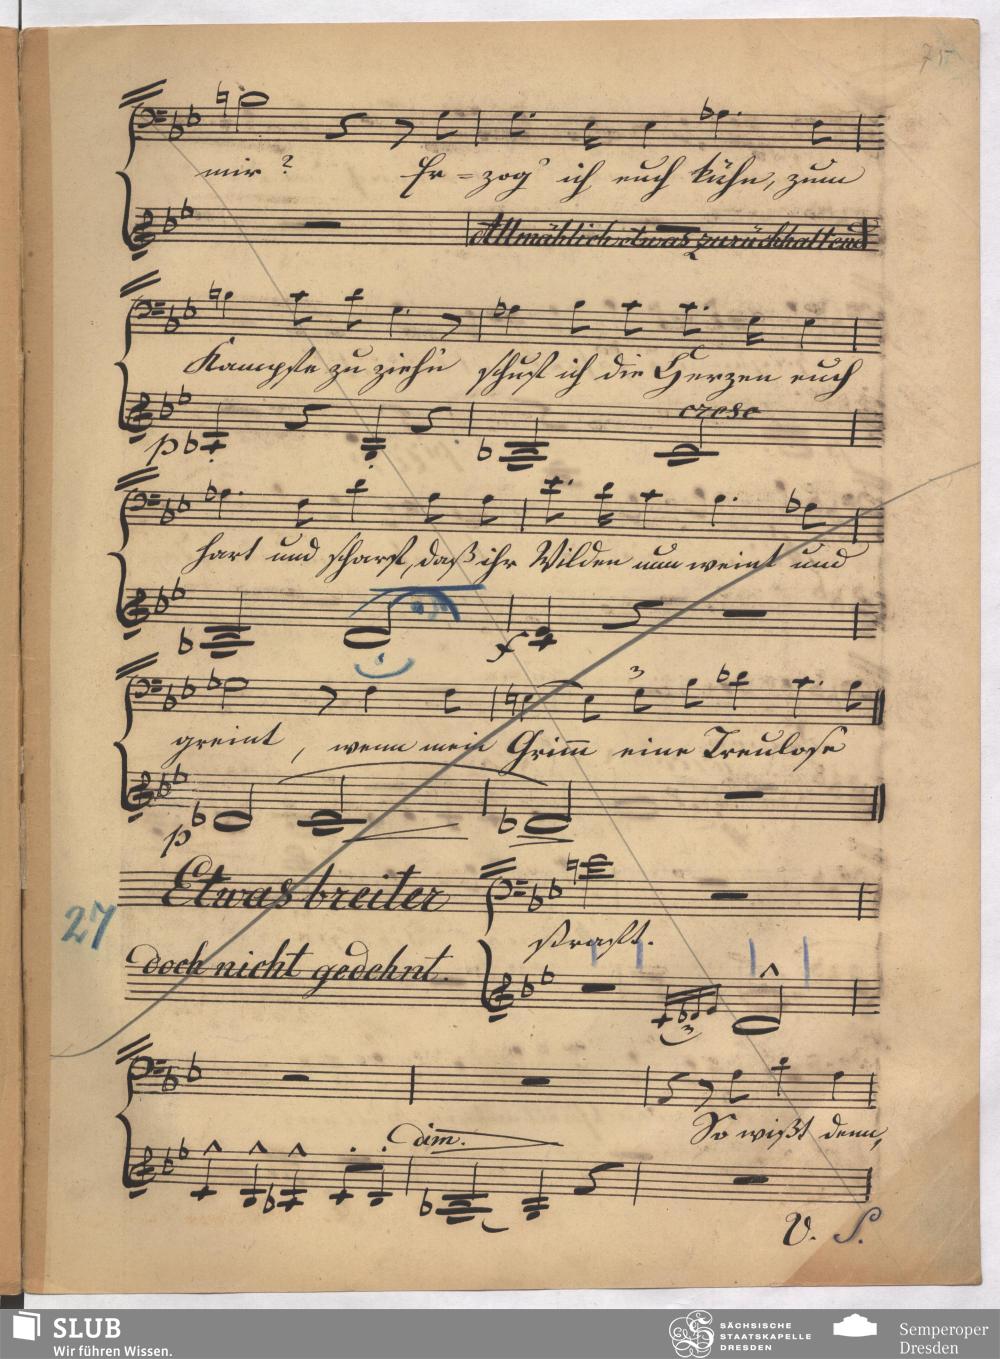 75
mir? Er=zog' ich euch kühn, zum
Allmählich etwas zurückhaltend
Kampfe zu ziehn schuf ich die Herzen euch
p
cresc
hart und scharf, daß ihr Wilden nun weint und
f
greint, wenn mein Grim̅ eine Treulose
3
p
Etwas breiter
straft.
27
doch nicht gedehnt.
3
dim.
So wißt denn,
V. S.
SLUB
Wir führen Wissen.
SÄCHSISCHE
STAATSKAPELLE
DRESDEN
Semperoper
Dresden